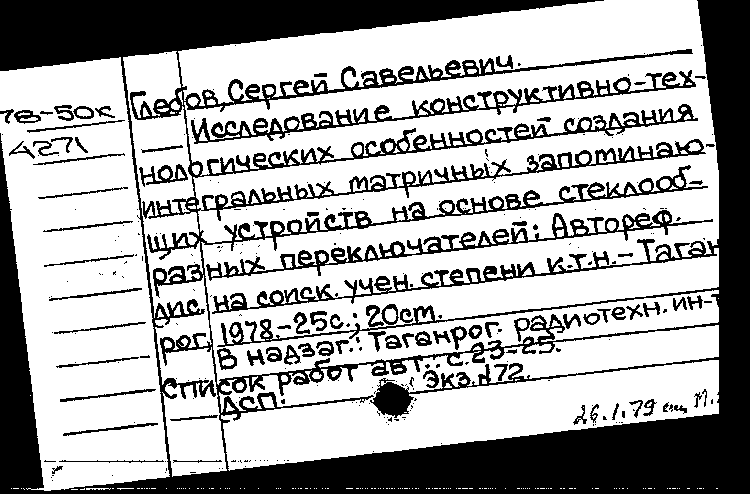 78-50к
4271
Глебов, Сергей Савельевич.
Исследование конструктивно-тех-
нологических особенностей создания
интегральных матричных запоминаю-
щих устройств на основе стеклооб-
разных переключателей: Автореф.
дис. на соиск. учен. степени к.т.н.-Таган
рог, 1978.-25с.; 20ст.
В надзаг.: Таганрог. радиотехн. ин-т
Список работ авт.: с.23-25.
ДСП! Экз.№72.
26.1.79